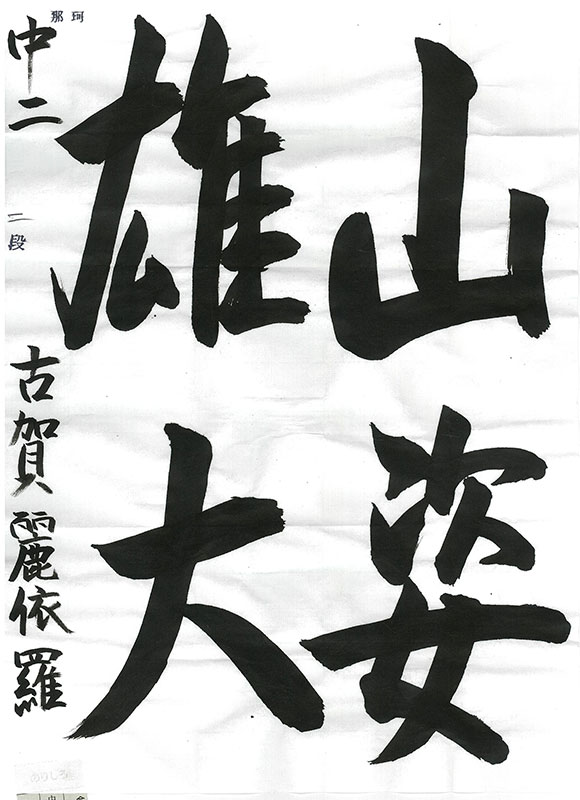 山姿
雄大
珂那
中二
二段
古賀麗依羅